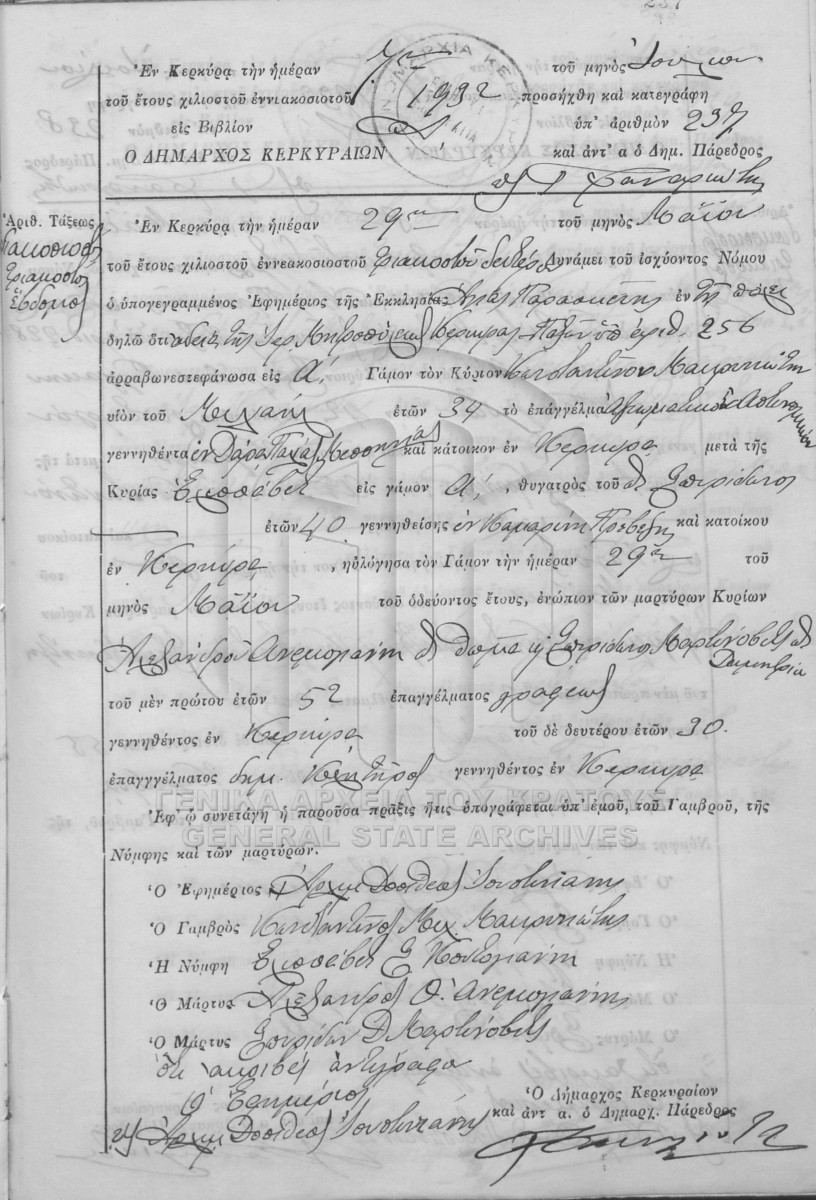 237
Ἐν Κερκύρᾳ τὴν ἡμέραν 1ην τοῦ μηνὸς Ἰουλίου
τοῦ ἔτους χιλιοστοῦ ἐννιακοσιοτοῦ 1932 προσήχθη καὶ κατεγράφη
εἰς Βιβλίον Α' ὑπ' ἀριθμὸν 237
Ο ΔΗΜΑΡΧΟΣ ΚΕΡΚΥΡΑΙΩΝ καὶ ἀντ' α ὁ Δημ. Πάρεδρος
Ἀριθ. Τάξεως
διακοσιοστὴ
τριακοστὴ
ἑβδόμη
Ἐν Κερκύρᾳ τὴν ἡμέραν 29ην τοῦ μηνὸς Μαΐου
τοῦ ἔτους χιλιοστοῦ ἐννεακοσιοστοῦ τριακοστοῦ δευτέρου Δυνάμει τοῦ ἰσχύοντος Νόμου
ὁ ὑπογεγραμμένος Ἐφημέριος τῆς Ἐκκλησίας Ἁγίας Παρασκευῆς ἐν τῇ πόλει
δηλῶ ὅτι ἀδείᾳ τῆς Ἱερ. Μητροπόλεως Κερκύρας Παξῶν ὑπ' ἀριθ. 256
ἀρραβωνεστεφάνωσα εἰς Α' Γάμον τὸν Κύριον Κωνσταντῖνον Μακρυπώτην
υἱὸν τοῦ Μιχαὴλ ἐτῶν 34 τὸ ἐπάγγελμα
γεννηθέντα ἐν Μεσσηνίας καὶ κάτοικον ἐν Κερκύρᾳ μετὰ τῆς
Κυρίας Ἐλισσάβετ εἰς γάμον Α', θυγατρὸς τοῦ Σπυρίδωνος
ἐτῶν 40 γεννηθείσης ἐν Καμαρίνῃ Πρεβέζης καὶ κατοίκου
ἐν Κερκύρᾳ, ηὐλόγησα τὸν Γάμον τὴν ἡμέραν 29ην τοῦ
μηνὸς Μαΐου τοῦ ὁδεύοντος ἔτους, ἐνώπιον τῶν μαρτύρων Κυρίων
Ἀλεξάνδρου Ἀνεμογιάννη Θωμᾶ καὶ Σπυρίδωνος Μαρτινόβιτς
Δημητρίου
τοῦ μὲν πρώτου ἐτῶν 52 ἐπαγγέλματος γραφέως
γεννηθέντος ἐν Κερκύρᾳ τοῦ δὲ δευτέρου ἐτῶν 30.
ἐπαγγγέλματος δημ. Κλητῆρος γεννηθέντος ἐν Κερκύρᾳ
ΓΕΝΙΚΑ ΑΡΧΕΙΑ ΤΟΥ ΚΡΑΤΟΥΣ
Ἐφ ᾧ συνετάγη ἡ παροῦσα πρᾶξις ἥτις ὑπογράφεται ὑπ' ἐμοῦ, τοῦ Γαμβροῦ, τῆς
GENERAL STATE ARCHIVES
Νύμφης καὶ τῶν μαρτύρων.
Ὁ Ἐφημέριος Ἀρχιμ. Δοσίθεος Ἰουστινιάνης
Ὁ Γαμβρὸς Κωνσταντῖνος Μιχ. Μακρυπώτης
Ἡ Νύμφη Ἐλισσάβετ Σ
Ὁ Μάρτυς Ἀλέξανδρος Θ. Ἀνεμογιάννης
Ὁ Μάρτυς Σπυρίδων Δ Μαρτινόβιτς
Ὅτι ἀκριβὲς ἀντίγραφον
Ὁ Ἐφημέριος
Ἀρχιμ. Δοσίθεος Ἰουστινιάνης
Ὁ Δήμαρχος Κερκυραίων
καὶ ἀντ α. ὁ Δημαρχ. Πάρεδρος